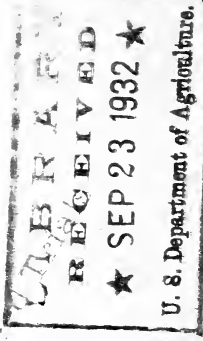 LIBRARY
RECEIVED
★ SEP 23 1932 ★
U. S. Department of Agriculture.